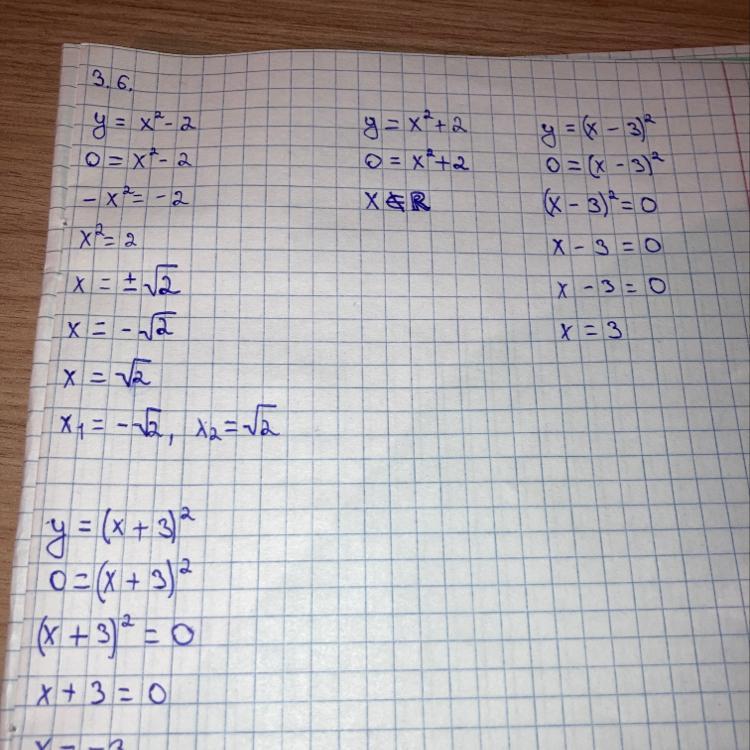 3.6.
y = x² - 2
0 = x² - 2
- x² = -2
x² = 2
x = ±√2
x = -√2
x = √2
x₁ = -√2, x₂ = √2
y = x² + 2
0 = x² + 2
y = (x - 3)²
0 = (x - 3)²
(x - 3)² = 0
x - 3 = 0
x - 3 = 0
x = 3
y = (x + 3)²
0 = (x + 3)²
(x + 3)² = 0
x + 3 = 0
x = -3